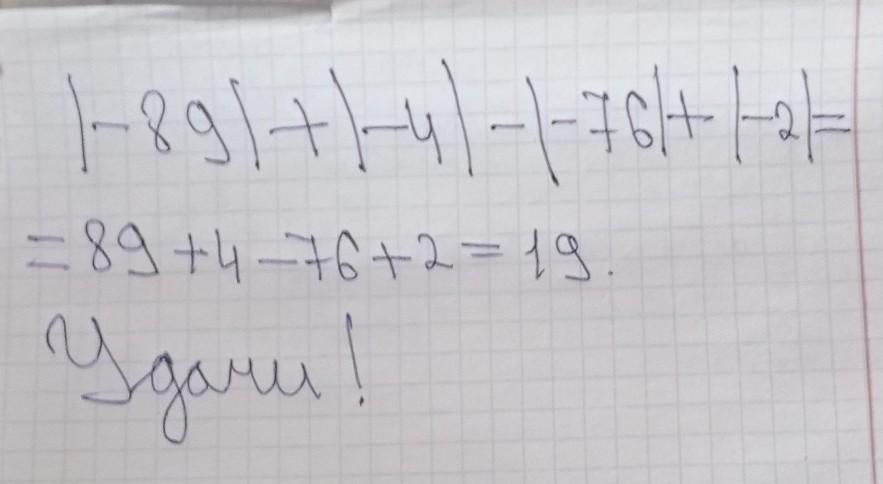 |-89|+|-4|-|-76|+|-2|=
=89+4-76+2=19.
Удачи!